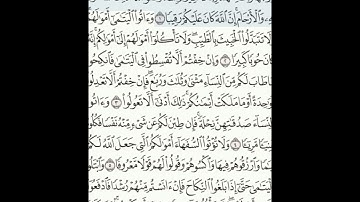 ءَ وَٱلْأَرْحَامَ إِنَّ ٱللَّهَ كَانَ عَلَيْكُمْ رَقِيبًا ۝١ وَءَاتُوا۟ ٱلْيَتَـٰمَىٰٓ أَمْوَٰلَهُمْ
وَلَا تَتَبَدَّلُوا۟ ٱلْخَبِيثَ بِٱلطَّيِّبِ وَلَا تَأْكُلُوٓا۟ أَمْوَٰلَهُمْ إِلَىٰٓ أَمْوَٰلِكُمْ
حُوبًا كَبِيرًا ۝٢ وَإِنْ خِفْتُمْ أَلَّا تُقْسِطُوا۟ فِى ٱلْيَتَـٰمَىٰ فَٱنكِحُوا۟
مَا طَابَ لَكُم مِّنَ ٱلنِّسَآءِ مَثْنَىٰ وَثُلَـٰثَ وَرُبَـٰعَ فَإِنْ خِفْتُمْ أَلَّا تَعْدِلُوا۟
وَٰحِدَةً أَوْ مَا مَلَكَتْ أَيْمَـٰنُكُمْ ذَٰلِكَ أَدْنَىٰٓ أَلَّا تَعُولُوا۟ ۝٣ وَءَاتُوا۟
ٱلنِّسَآءَ صَدُقَـٰتِهِنَّ نِحْلَةً فَإِن طِبْنَ لَكُمْ عَن شَىْءٍ مِّنْهُ نَفْسًا فَكُلُوهُ
هَنِيٓـًٔا مَّرِيٓـًٔا ۝٤ وَلَا تُؤْتُوا۟ ٱلسُّفَهَآءَ أَمْوَٰلَكُمُ ٱلَّتِى جَعَلَ ٱللَّهُ لَكُمْ
قِيَـٰمًا وَٱرْزُقُوهُمْ فِيهَا وَٱكْسُوهُمْ وَقُولُوا۟ لَهُمْ قَوْلًا مَّعْرُوفًا ۝٥ وَٱبْتَلُوا۟
ٱلْيَتَـٰمَىٰ حَتَّىٰٓ إِذَا بَلَغُوا۟ ٱلنِّكَاحَ فَإِنْ ءَانَسْتُم مِّنْهُمْ رُشْدًا فَٱدْفَعُوٓا۟